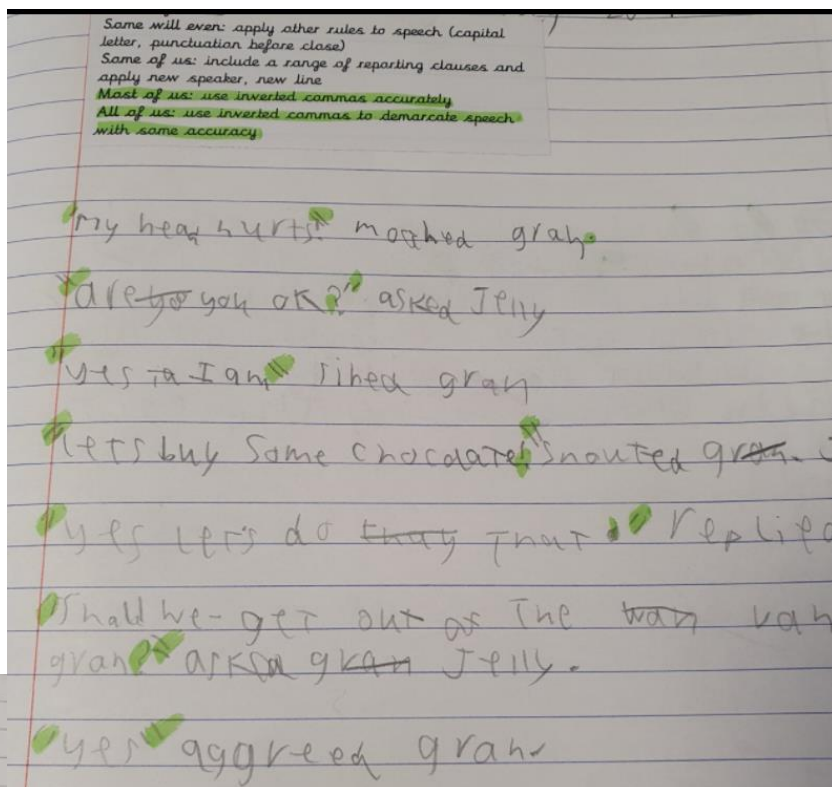 Some will even: apply other rules to speech (capital
letter, punctuation before close)
Some of us: include a range of reporting clauses and
apply new speaker, new line
Most of us: use inverted commas accurately
All of us: use inverted commas to demarcate speech
with some accuracy
"my head hurts." moahed gran.
"are you ok?" asked Jelly
"yes I am" sihed gran
"lets buy some chocolate!" shouted
"yes let's do that." replied
"Shall we get out of the van
gran?" asked Jelly.
"yes" aggreed gran.